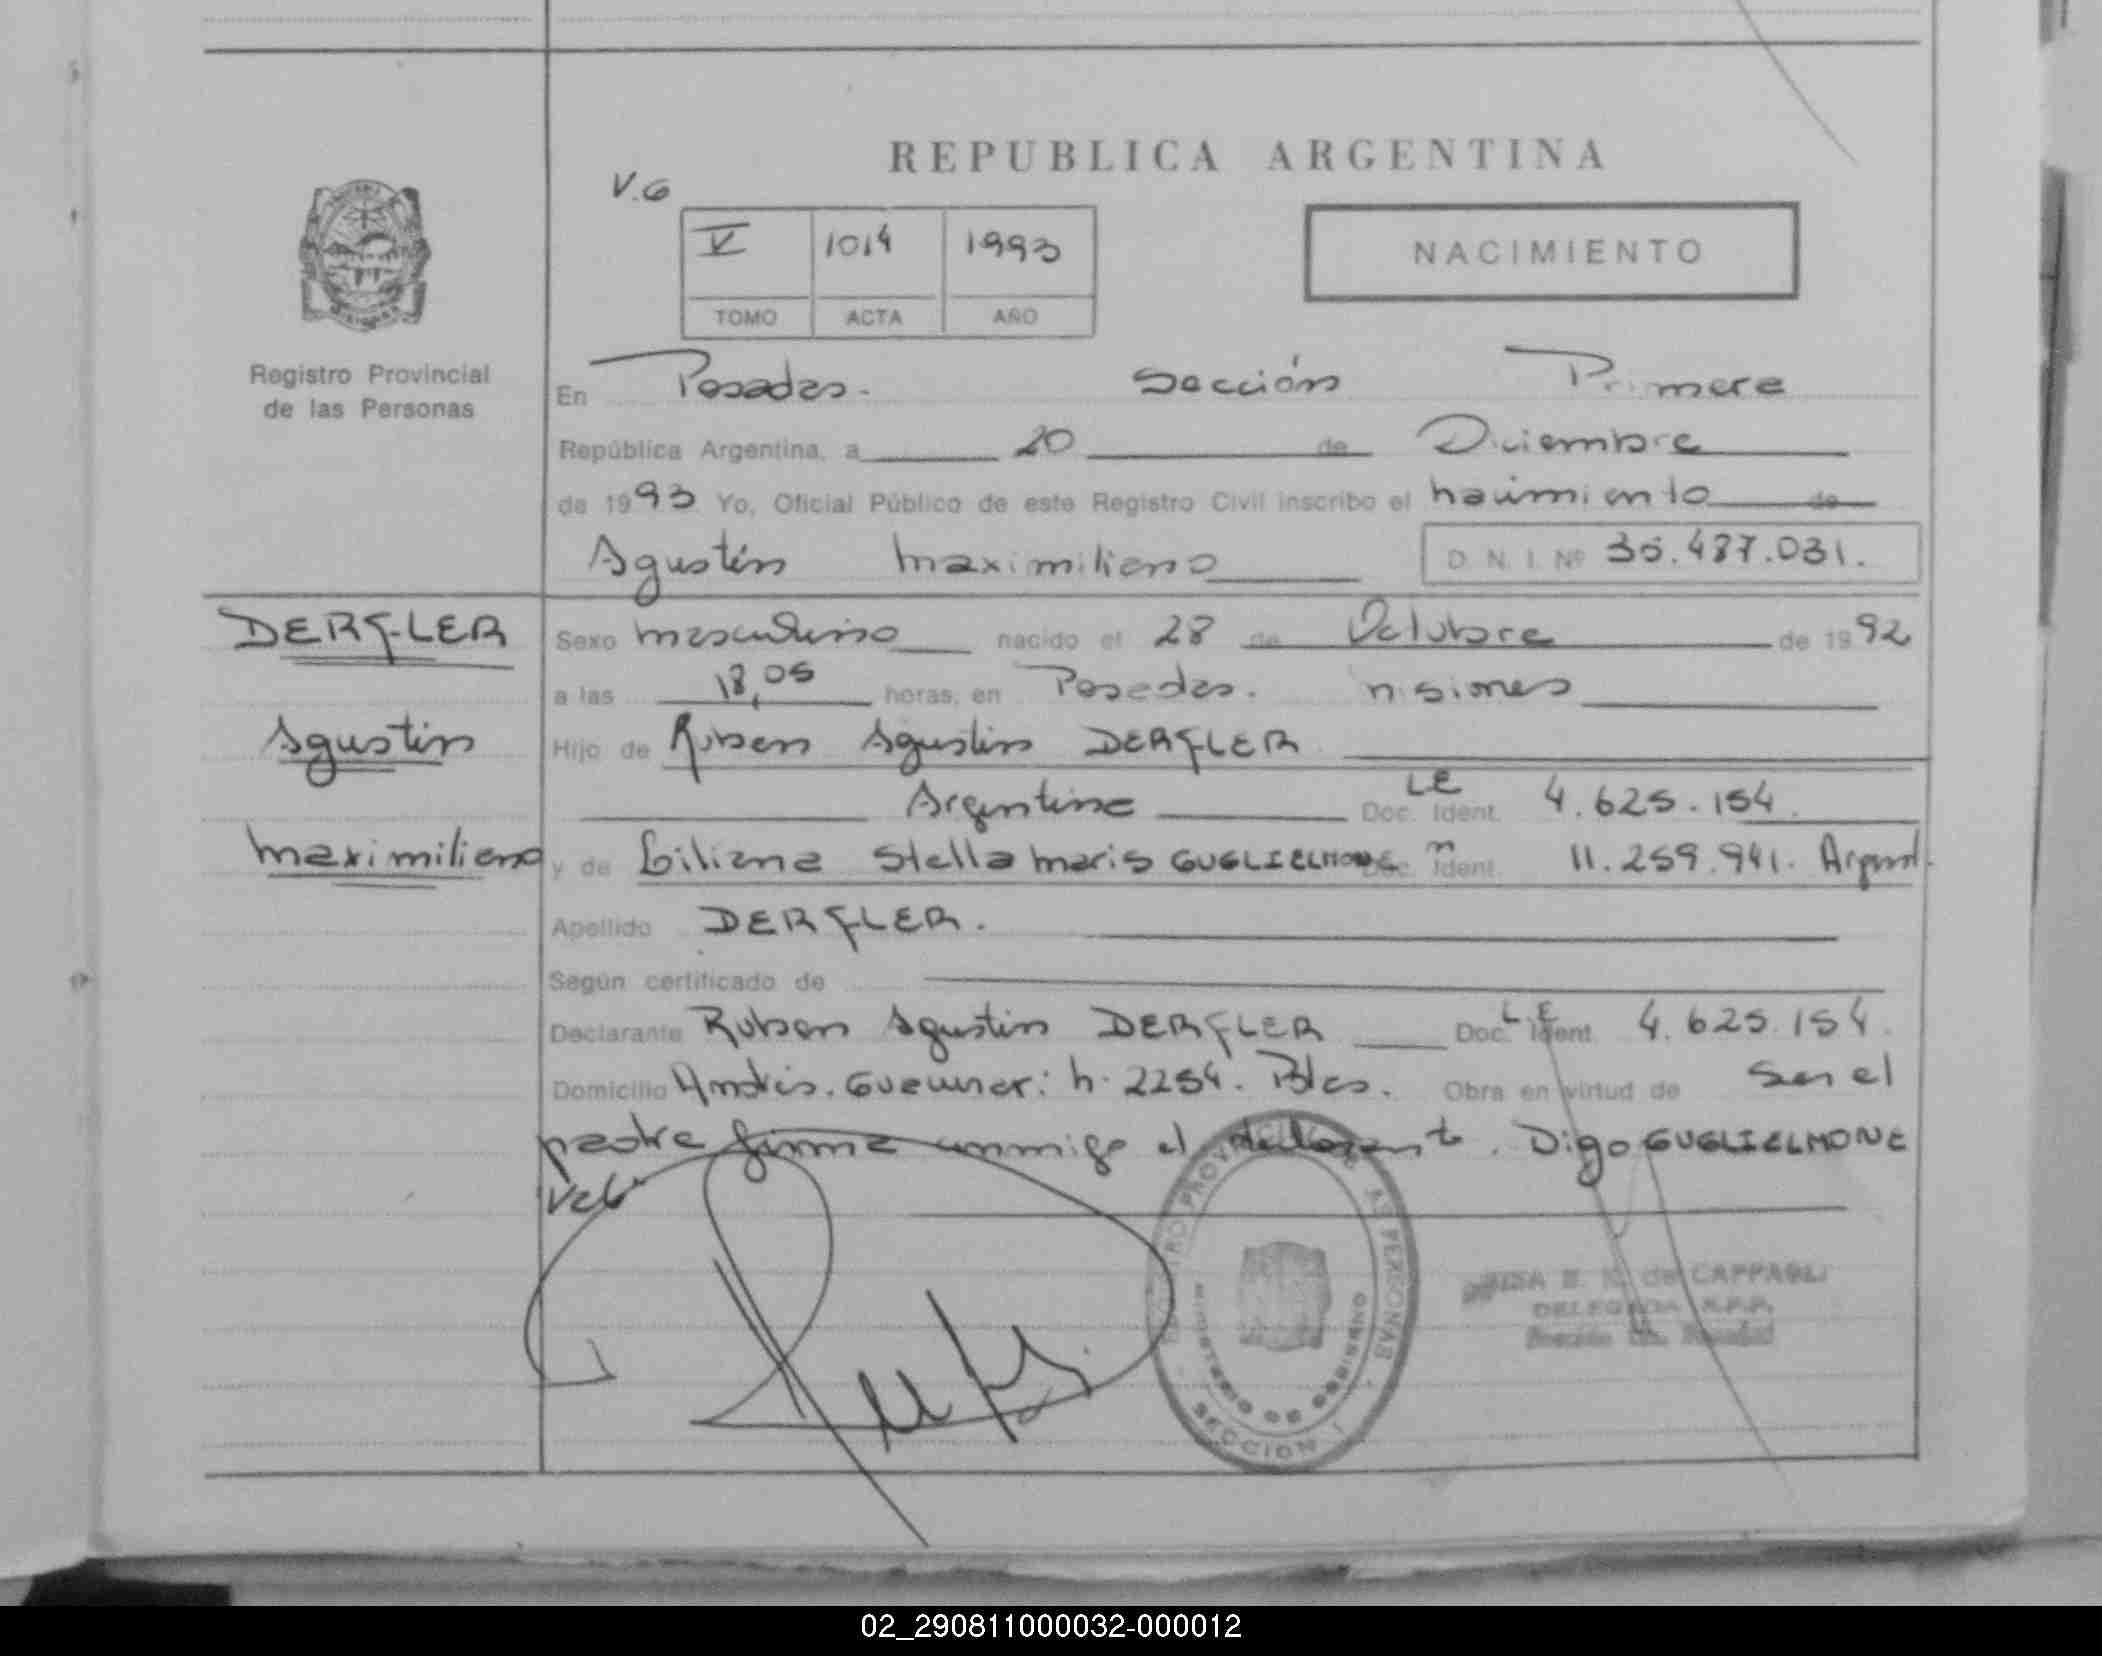 REPUBLICA ARGENTINA
V.G
V 1014 1993
TOMO ACTA AÑO
NACIMIENTO
Registro Provincial
de las Personas
En Posadas. Sección Primera
República Argentina, a 20 de Diciembre
de 1993 Yo, Oficial Público de este Registro Civil inscribo el nacimiento de
Agustín Maximiliano D. N. I. Nº 36.487.031.
DERFLER
Agustin
Maximiliano
Sexo masculino nacido el 28 de Octubre de 1992
a las 18,05 horas, en Posadas. Misiones
Hijo de Ruben Agustin DERFLER
Argentina Doc. Ident. LE 4.625.154.
y de Liliana Stella Maris GUGLIELMONE Doc. Ident. 11.259.941. Argent.
Apellido DERFLER.
Según certificado de
Declarante Ruben Agustin DERFLER Doc. Ident. L.E 4.625.154.
Domicilio Andrés. h. 2254. Pdas. Obra en virtud de Ser el
padre firma conmigo el declarante. Digo GUGLIELMONE
Vale
REGISTRO PROVINCIAL DE LAS PERSONAS
MINISTERIO DE GOBIERNO
SECCION 1
de CAPPAGLI
DELEGADA R.P.P.
02_290811000032-000012